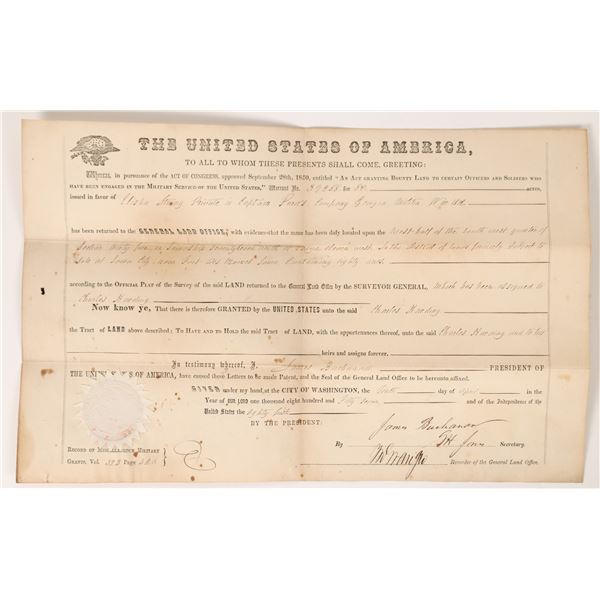 THE UNITED STATES OF AMERICA,
TO ALL TO WHOM THESE PRESENTS SHALL COME, GREETING:
Whereas, in pursuance of the ACT OF CONGRESS, approved September 28th, 1850, entitled "AN ACT GRANTING BOUNTY LAND TO CERTAIN OFFICERS AND SOLDIERS WHO
HAVE BEEN ENGAGED IN THE MILITARY SERVICE OF THE UNITED STATES," Warrant No. for 80 acres,
issued in favor of Elisha Private in Captain Company Georgia Militia
has been returned to the GENERAL LAND OFFICE, with evidence that the same has been duly located upon the West half of the South West quarter of
Section in Township North of Range eleven West in the District of lands formerly Subject to
Sale at Iowa City now Fort Des Moines Iowa Containing eighty acres
according to the OFFICIAL PLAT of the Survey of the said LAND returned to the General Land Office by the SURVEYOR GENERAL, which has been assigned to
Charles Harding
Now know ye, That there is therefore GRANTED by the UNITED STATES unto the said Charles Harding
the Tract of LAND above described; TO HAVE AND TO HOLD the said Tract of LAND, with the appurtenances thereof, unto the said Charles Harding and to his
heirs and assigns forever.
In testimony whereof, I, James Buchanan PRESIDENT OF
THE UNITED STATES OF AMERICA, have caused these Letters to be made Patent, and the Seal of the General Land Office to be hereunto affixed.
GIVEN under my hand, at the CITY OF WASHINGTON, the day of April in the
YEAR OF OUR LORD one thousand eight hundred and Fifty seven and of the Independence of the
United States the eighty first
BY THE PRESIDENT: James Buchanan
By Secretary.
Recorder of the General Land Office.
RECORD OF MISCELLANEOUS MILITARY
GRANTS, Vol. Page